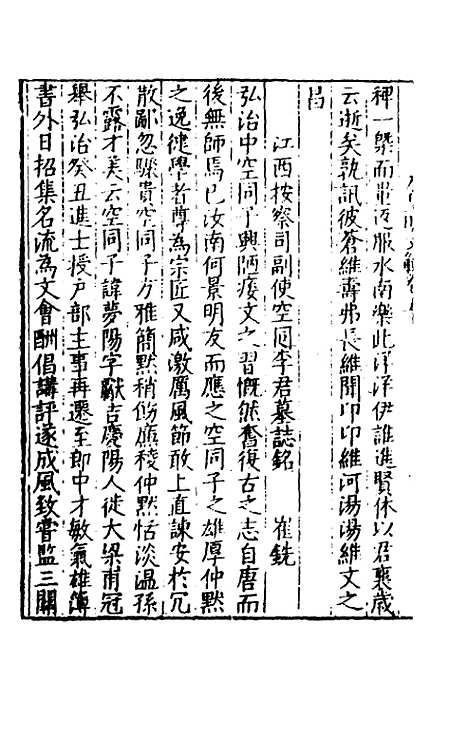 稗一槩而遐服水南樂此洋洋伊誰進賢休以君襄歲
云逝矣孰訊彼蒼維壽弗長維聞卬卬維河湯湯維文之
昌
江西按察司副使空同李君墓誌銘 崔銑
弘治中空同子興陋痿文之習慨然奮復古之志自唐而
後無師焉已汝南何景明友而應之空同子之雄厚仲默
之逸健學者尊為宗匠又咸激厲風節敢上直諫安於冗
散鄙忽驟貴空同子方雅簡默稍傷廉稜仲默恬淡温孫
不露才美云空同子諱夢陽字獻吉慶陽人徙大梁甫冠
舉弘治癸丑進士授戶部主事再遷至郎中才敏氣雄簿
書外日招集名流為文會酬倡講評遂成風致嘗監三關